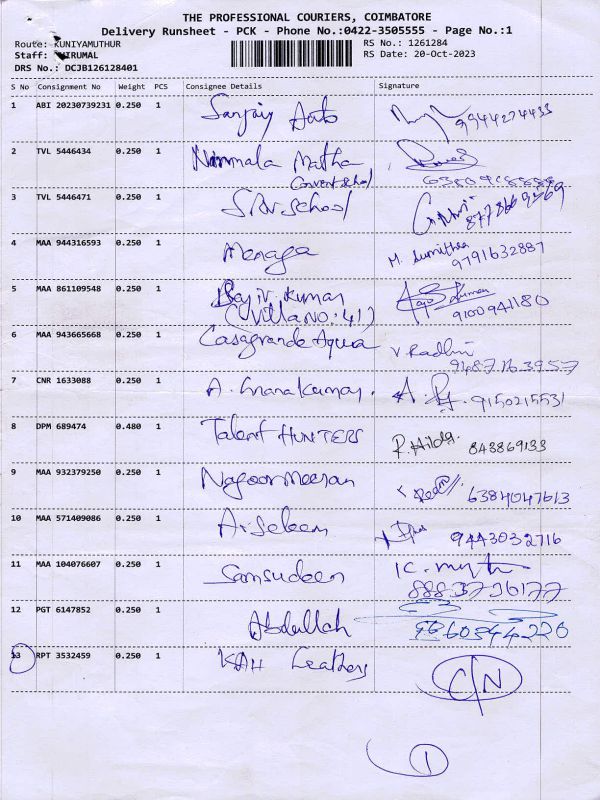 THE PROFESSIONAL COURIERS, COIMBATORE
Delivery Runsheet - PCK - Phone No.:0422-3505555 - Page No.:1
Route: KUNIYAMUTHUR
RS No.: 1261284
Staff:
RS Date: 20-Oct-2023
DRS No.: DCJB126128401
S No Consignment No Weight PCS Consignee Details Signature
1 ABI 20230739231 0.250 1 Sanjay Auto 9944274433
2 TVL 5446434 0.250 1 Nirmala Matha
Convent school
3 TVL 5446471 0.250 1 School
4 MAA 944316593 0.250 1 Menaga M. Sumithra
9791632887
5 MAA 861109548 0.250 1 Rajiv. Kumar
(Villa NO: 41) 9100941180
6 MAA 943665668 0.250 1 Casagrande Aqua V Radhi
9487163957
7 CNR 1633088 0.250 1 A. Gnanakumar. 9150215531
8 DPM 689474 0.480 1 Talent HUNTERS 843869133
9 MAA 932379250 0.250 1 Nagoor Meeran 6384047613
10 MAA 571409086 0.250 1 9443032716
11 MAA 104076607 0.250 1 Samsudeen
8883726177
12 PGT 6147852 0.250 1 Abdullah
13 RPT 3532459 0.250 1 Leathers C/N
1